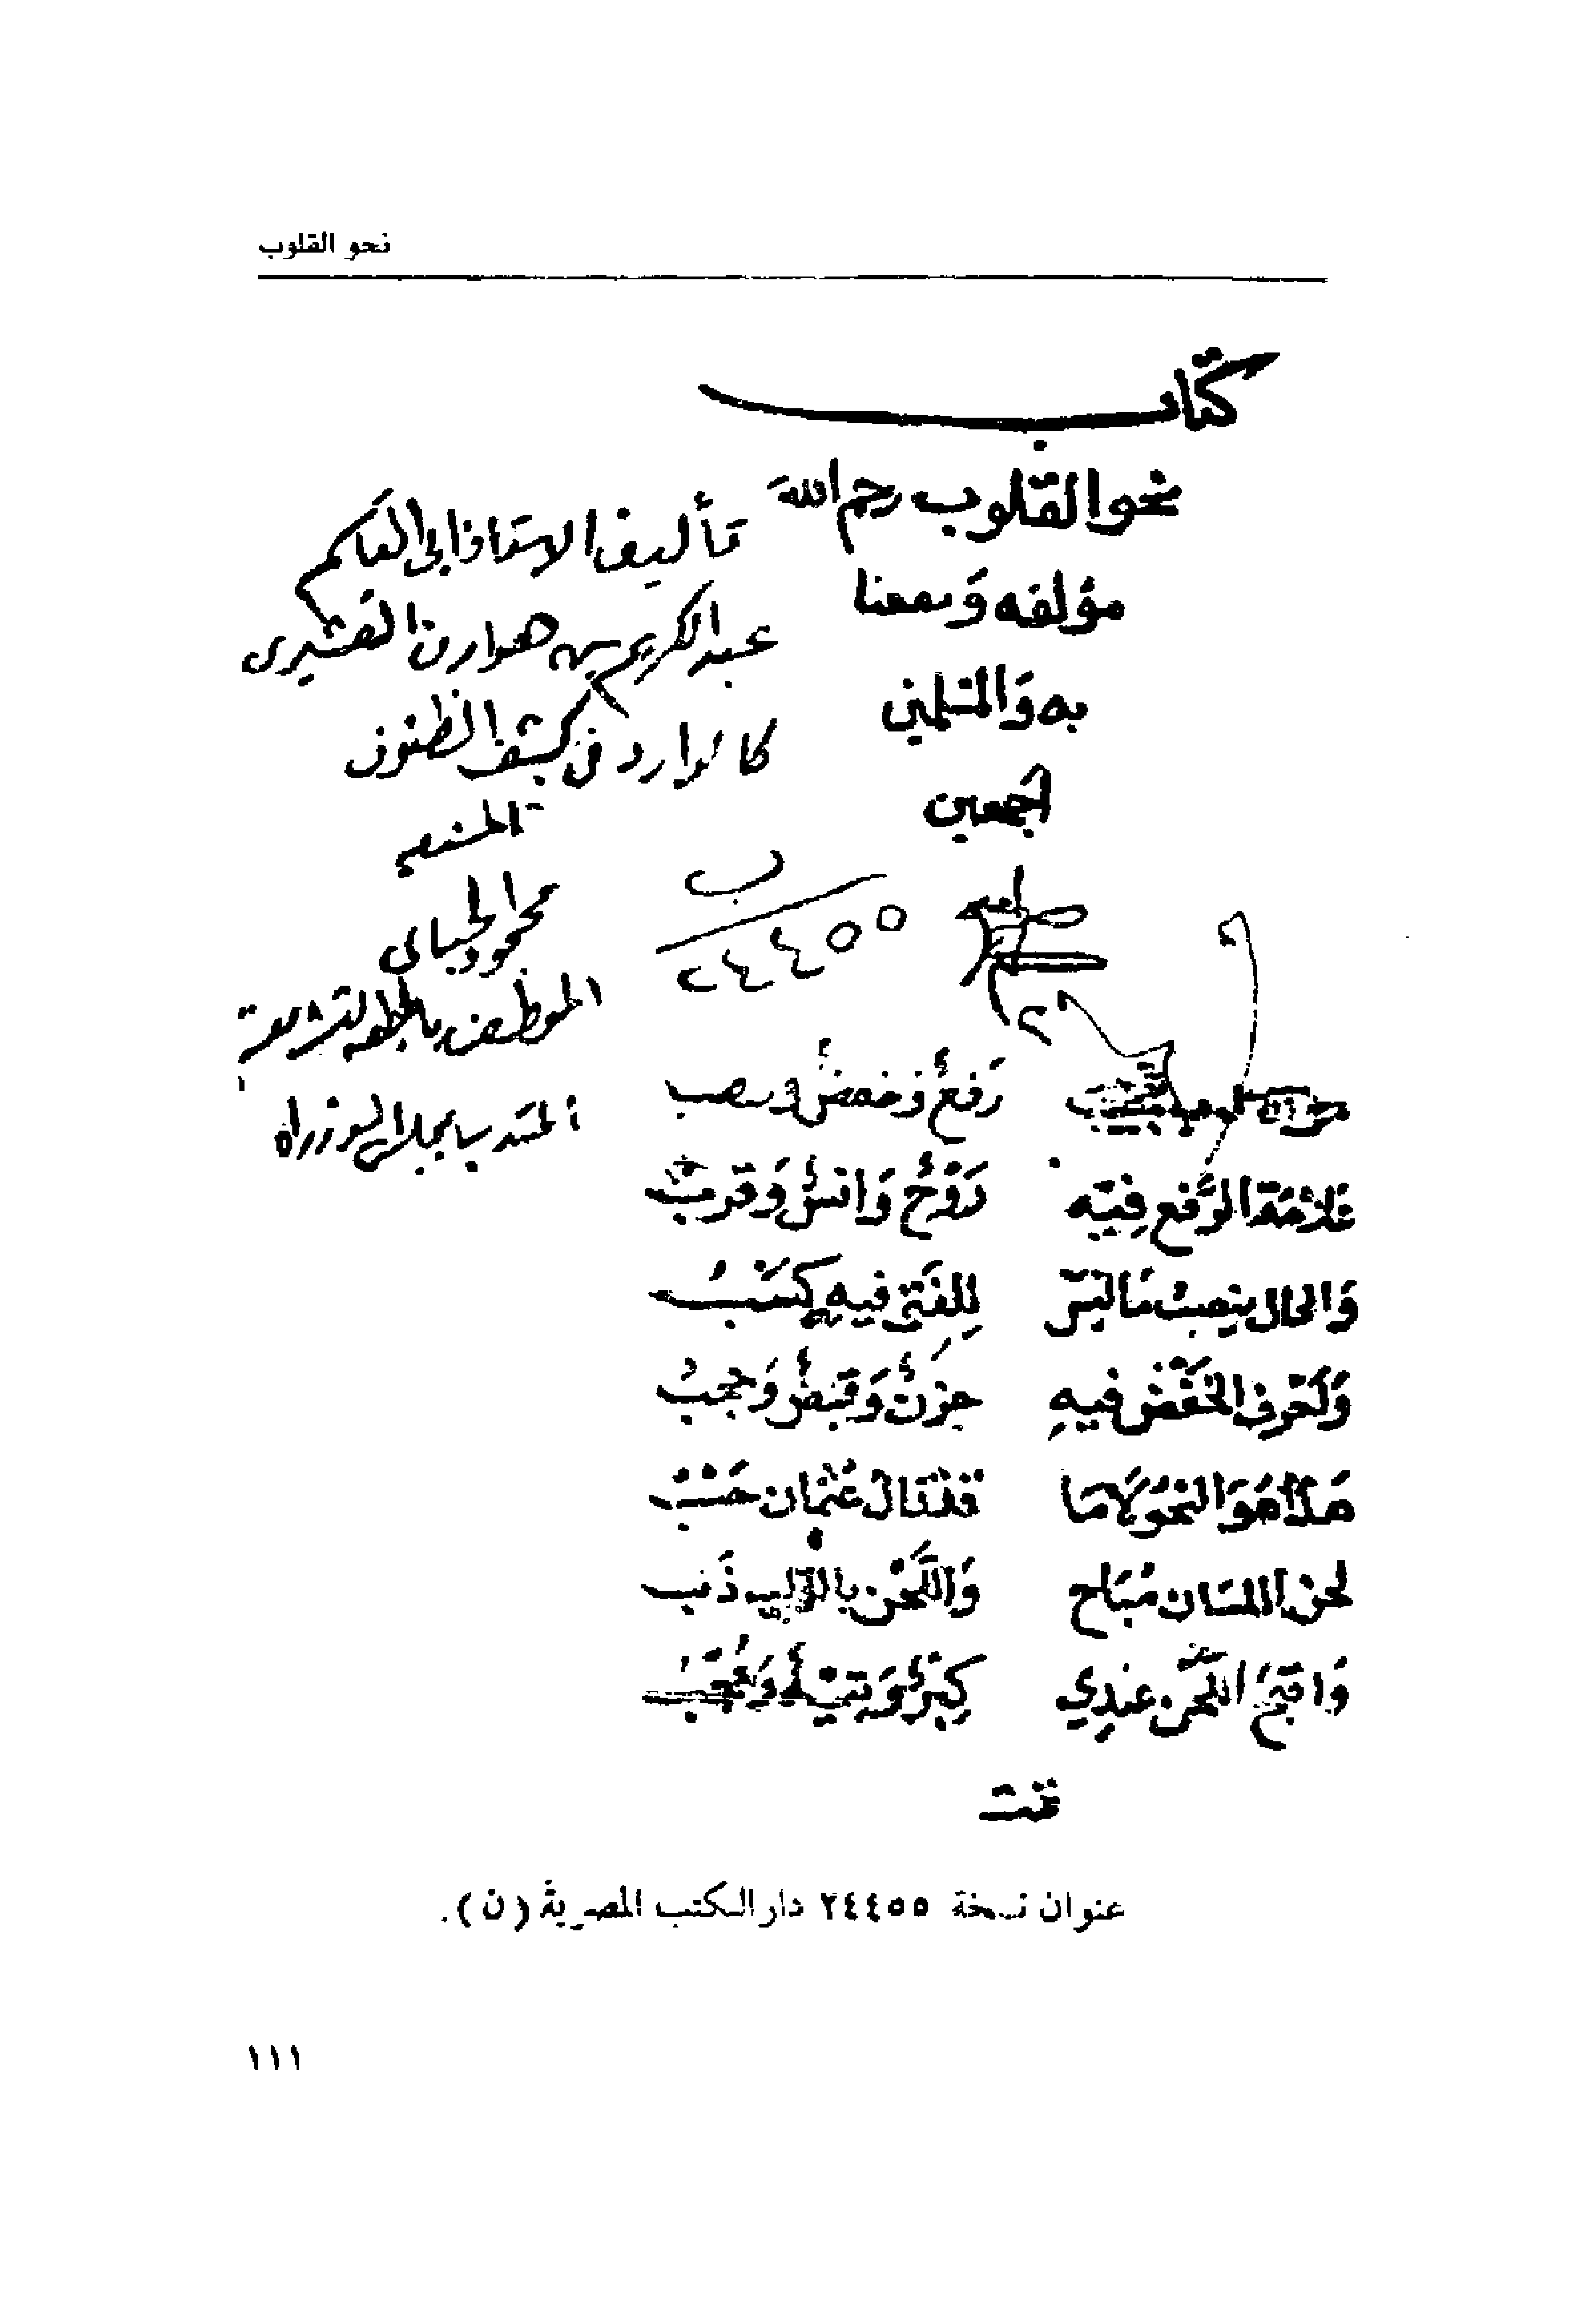 نحو القلوب
كتاب
نحو القلوب رحم الله
مؤلفه ونفعنا
به والمسلمين
أجمعين
تأليف الاستاذ ابى القاسم
عبد الكريم بن هوارن القشيرى
كالوارد فى كشف الظنون
محمود
الموظف
المنتدب بمجلس الوزراء
ب
٢٤٤٥٥
رفعٌ وخفضٌ ونصب
علامة الرفع فيه روْحٌ وانسٌ وقربٌ
والحال ينصبُ ما ليس للفتى فيهِ كسْبُ
ولتعرف الخفض فيهِ حزنٌ وقبضٌ وحجبُ
هذا هو النحو لا ما قد قال عثمان حسْبُ
لحن اللسان مُباح واللحْن بالقلب ذنب
واقبحُ اللحن عندِي كِبْرٌ وتيْهٌ وعُجْبُ
تمت
عنوان نسخة ٢٤٤٥٥ دار الكتب المصرية (ن).
١١١